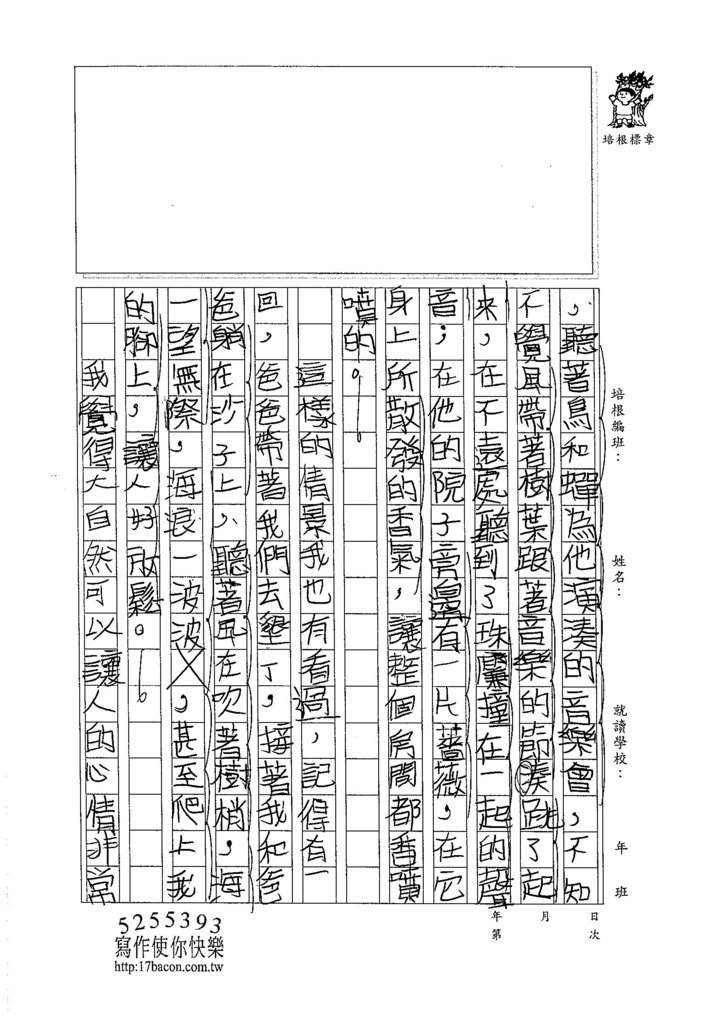 培根標章
培根編班：
姓名：
就讀學校：
年
班
年
月
日
第
次
，聽著鳥和蟬為他演湊的音樂會，不知
不覺風帶著樹葉跟著音樂的節湊跳了起
來，在不遠處聽到了珠簾撞在一起的聲
音；在他的院子旁邊有一片薔薇，在它
身上所散發的香氣，讓整個房間都香噴
噴的。
這樣的情景我也有看過，記得有一
回，爸爸帶著我們去墾丁，接著我和爸
爸躺在沙子上，聽著風在吹著樹梢，海
一望無際，海浪一波波，甚至爬上我
的腳上，讓人好放鬆。
我覺得大自然可以讓人的心情非常
5255393
寫作使你快樂
http:17bacon.com.tw